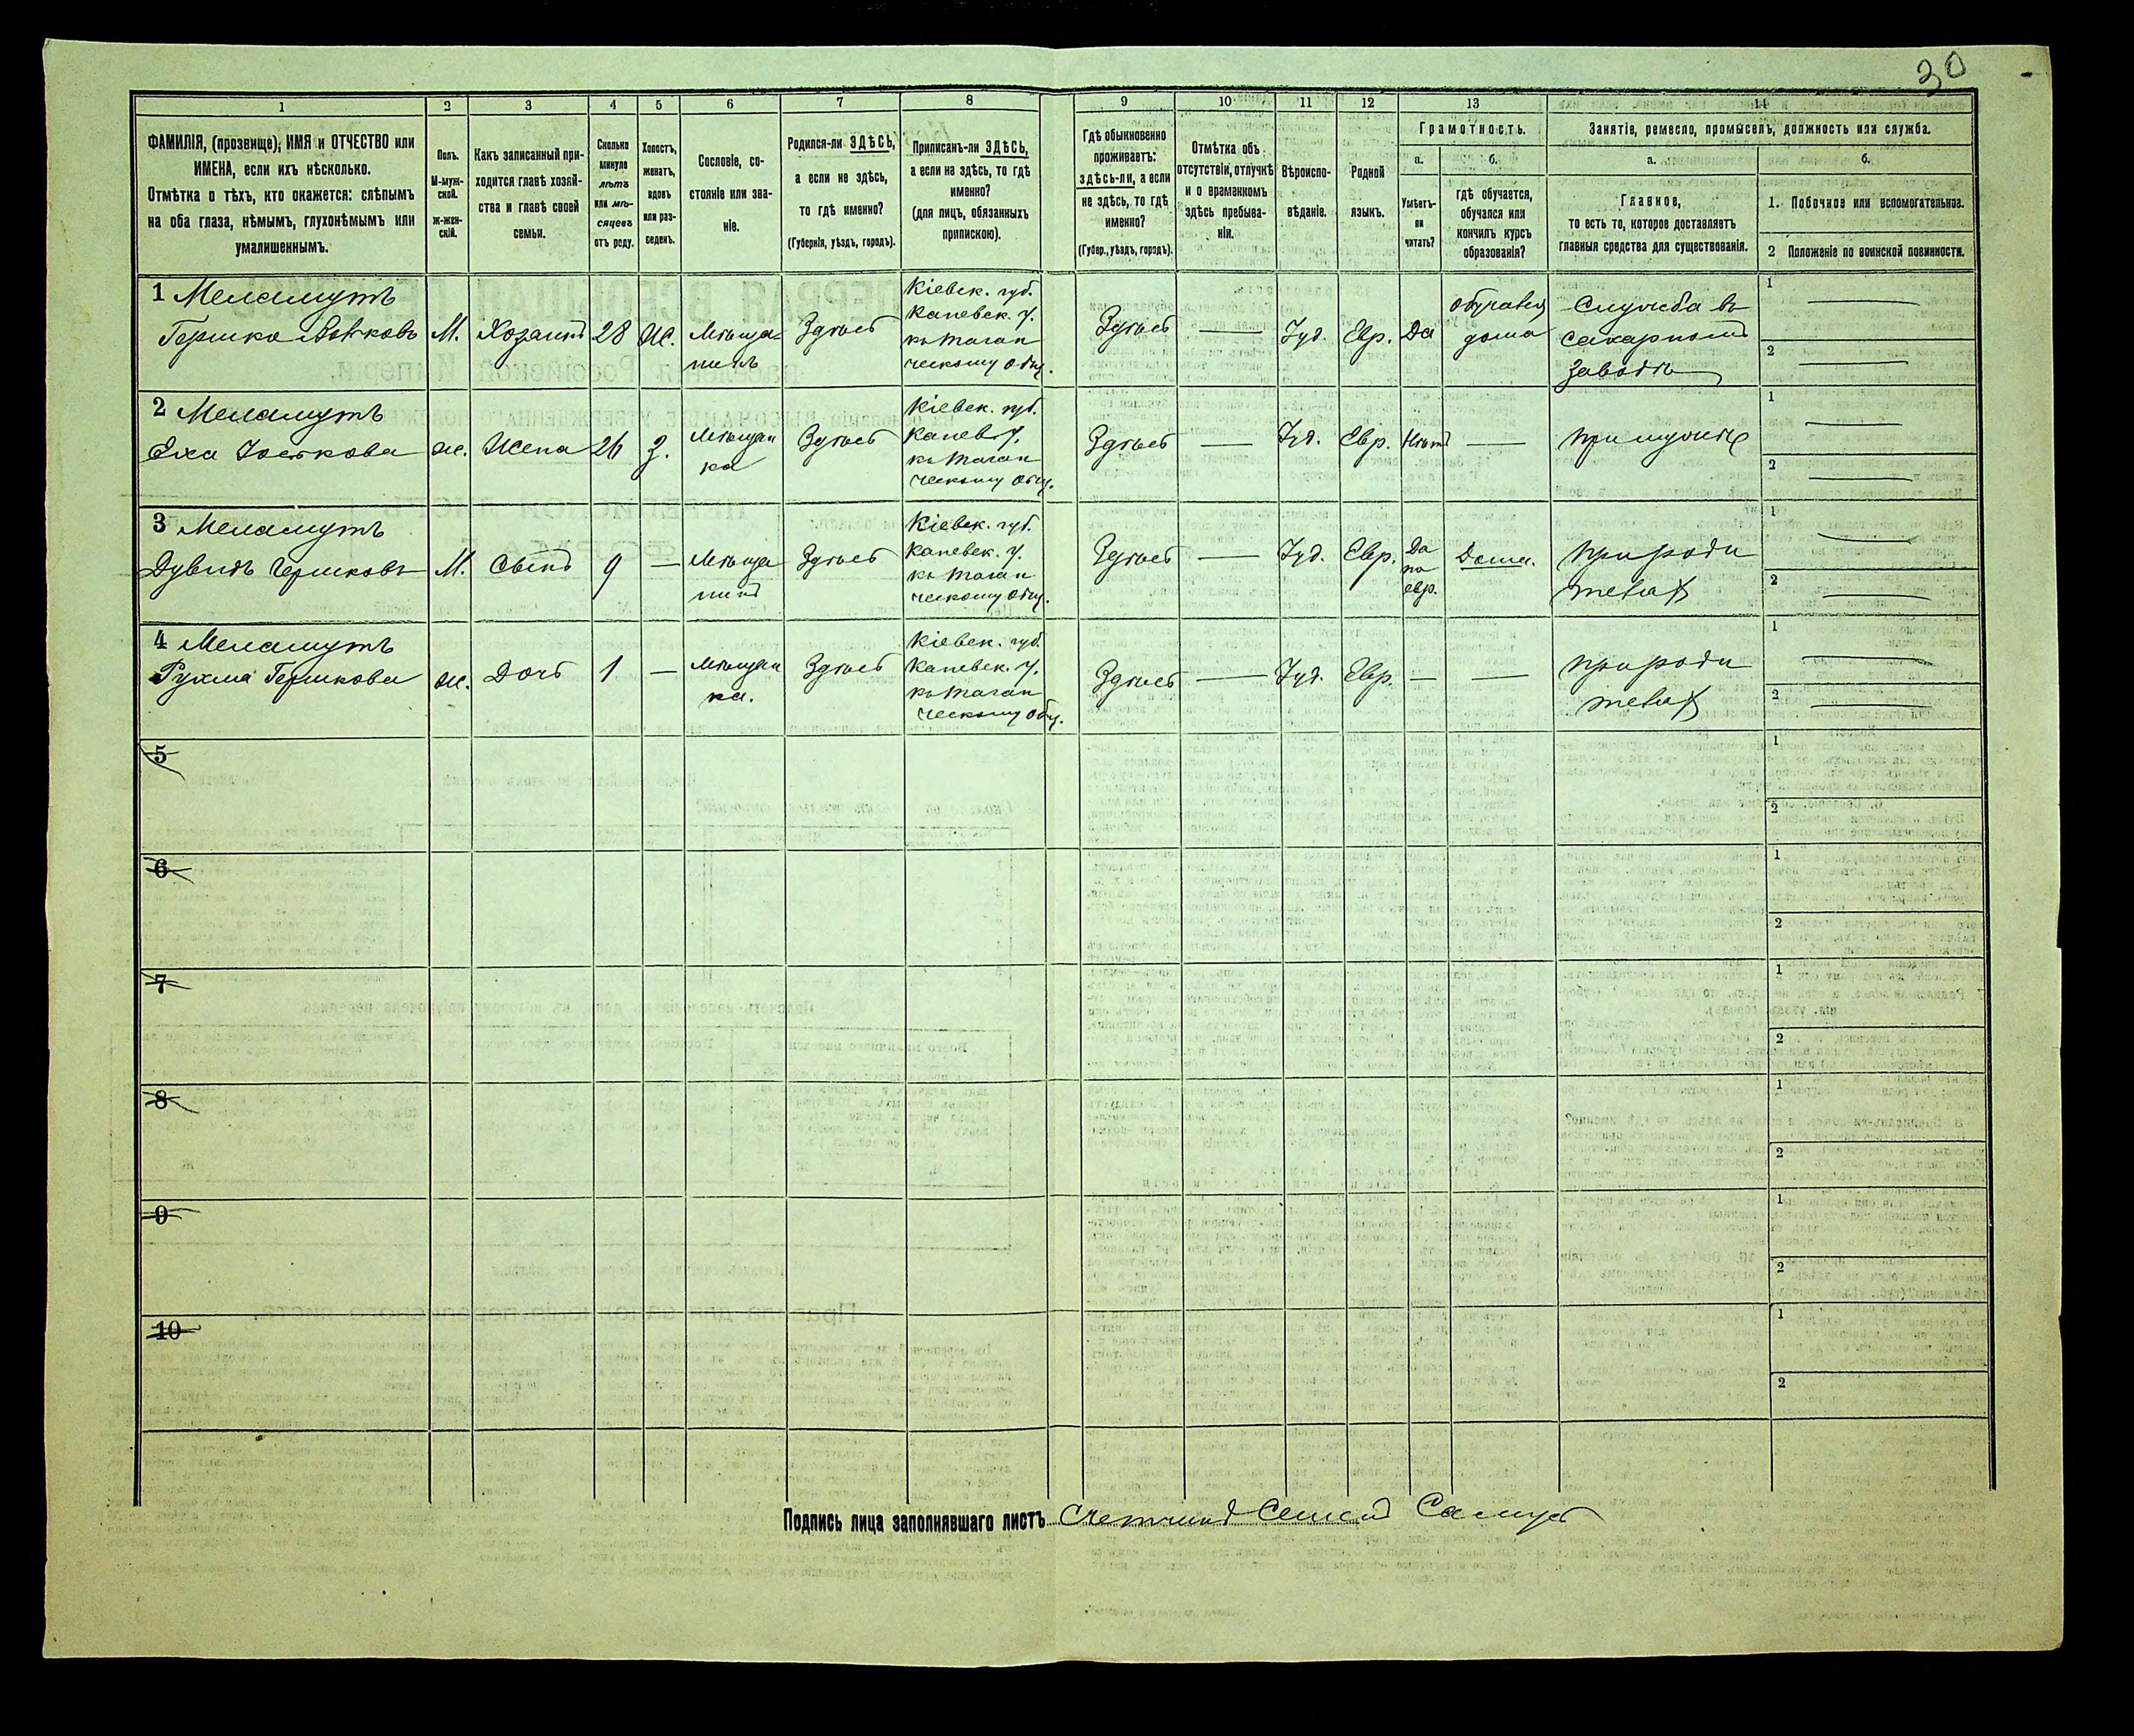 30
1
2
3
4
5
6
7
8
9
10
11
12
13
14
ФАМИЛІЯ, (прозвище), ИМЯ и ОТЧЕСТВО или
ИМЕНА, если ихъ нѣсколько.
Отмѣтка о тѣхъ, кто окажется: слѣпымъ
на оба глаза, нѣмымъ, глухонѣмымъ или
умалишеннымъ.
Полъ.
М-муж-
ской.
ж-жен-
скій.
Какъ записанный при-
ходится главѣ хозяй-
ства и главѣ своей
семьи.
Сколько
минуло
лѣтъ
или мѣ-
сяцевъ
отъ роду.
Холостъ,
женатъ,
вдовъ
или раз-
веденъ.
Сословіе, со-
стояніе или зва-
ніе.
Родился-ли ЗДѢСЬ,
а если не здѣсь,
то гдѣ именно?
(Губернія, уѣздъ, городъ).
Приписанъ-ли ЗДѢСЬ,
а если не здѣсь, то гдѣ
именно?
(для лицъ, обязанныхъ
припискою).
Гдѣ обыкновенно
проживаетъ:
здѣсь-ли, а если
не здѣсь, то гдѣ
именно?
(Губер., уѣздъ, городъ).
Отмѣтка объ
отсутствіи, отлучкѣ
и о временномъ
здѣсь пребыва-
ніи.
Вѣроиспо-
вѣданіе.
Родной
языкъ.
Грамотность.
а.
Умѣетъ-
ли
читать?
б.
гдѣ обучается,
обучался или
кончилъ курсъ
образованія?
Занятіе, ремесло, промыселъ, должность или служба.
а.
Главное,
то есть то, которое доставляетъ
главныя средства для существованія.
б.
1. Побочное или вспомогательное.
2 Положеніе по воинской повинности.
1 Меламутъ
Гершко
М.
Хозяинъ
28
Ж.
Мѣща-
нинъ
Здѣсь
Кіевск. губ.
Каневск. у.
къ
ческому общ.
Здѣсь
—
Іуд.
Евр.
Да
обучался
дома
Служба въ
сахарномъ
заводѣ
1 —
2 —
2 Меламутъ
Еха Іоськова
ж.
Жена
26
З.
Мѣщан
ка
Здѣсь
Кіевск. губ.
Канев. у.
къ
ческому общ.
Здѣсь
—
Іуд.
Евр.
Нѣтъ
—
при мужѣ
1 —
2 —
3 Меламутъ
Дувидъ Гершковъ
М.
Сынъ
9
—
Мѣща
нинъ
Здѣсь
Кіевск. губ.
Каневск. у.
къ
ческому общ.
Здѣсь
—
Іуд.
Евр.
Да
по
евр.
Дома.
при роди
теляхъ
1 —
2 —
4 Меламутъ
Рухма Гершкова
ж.
Дочь
1
—
Мѣщан
ка.
Здѣсь
Кіевск. губ.
Каневск. у.
къ
ческому общ.
Здѣсь
—
Іуд.
Евр.
—
—
при роди
теляхъ
1 —
2 —
5
1
2
6
1
2
7
1
2
8
1
2
9
1
2
10
1
2
Подпись лица заполнявшаго листъ Счетчикъ